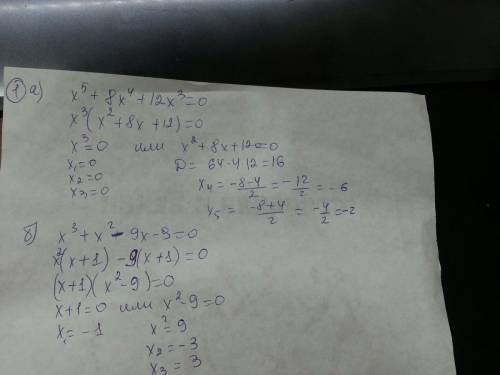 ① а) x⁵ + 8x⁴ + 12x³ = 0
x³(x² + 8x + 12) = 0
x³ = 0 или x² + 8x + 12 = 0
x₁ = 0 D = 64 - 4·12 = 16
x₂ = 0 x₄ = (-8-4)/2 = -12/2 = -6
x₃ = 0
x₅ = (-8+4)/2 = -4/2 = -2
б) x³ + x² - 9x - 9 = 0
x²(x+1) - 9(x+1) = 0
(x+1)(x² - 9) = 0
x+1 = 0 или x² - 9 = 0
x₁ = -1 x² = 9
x₂ = -3
x₃ = 3